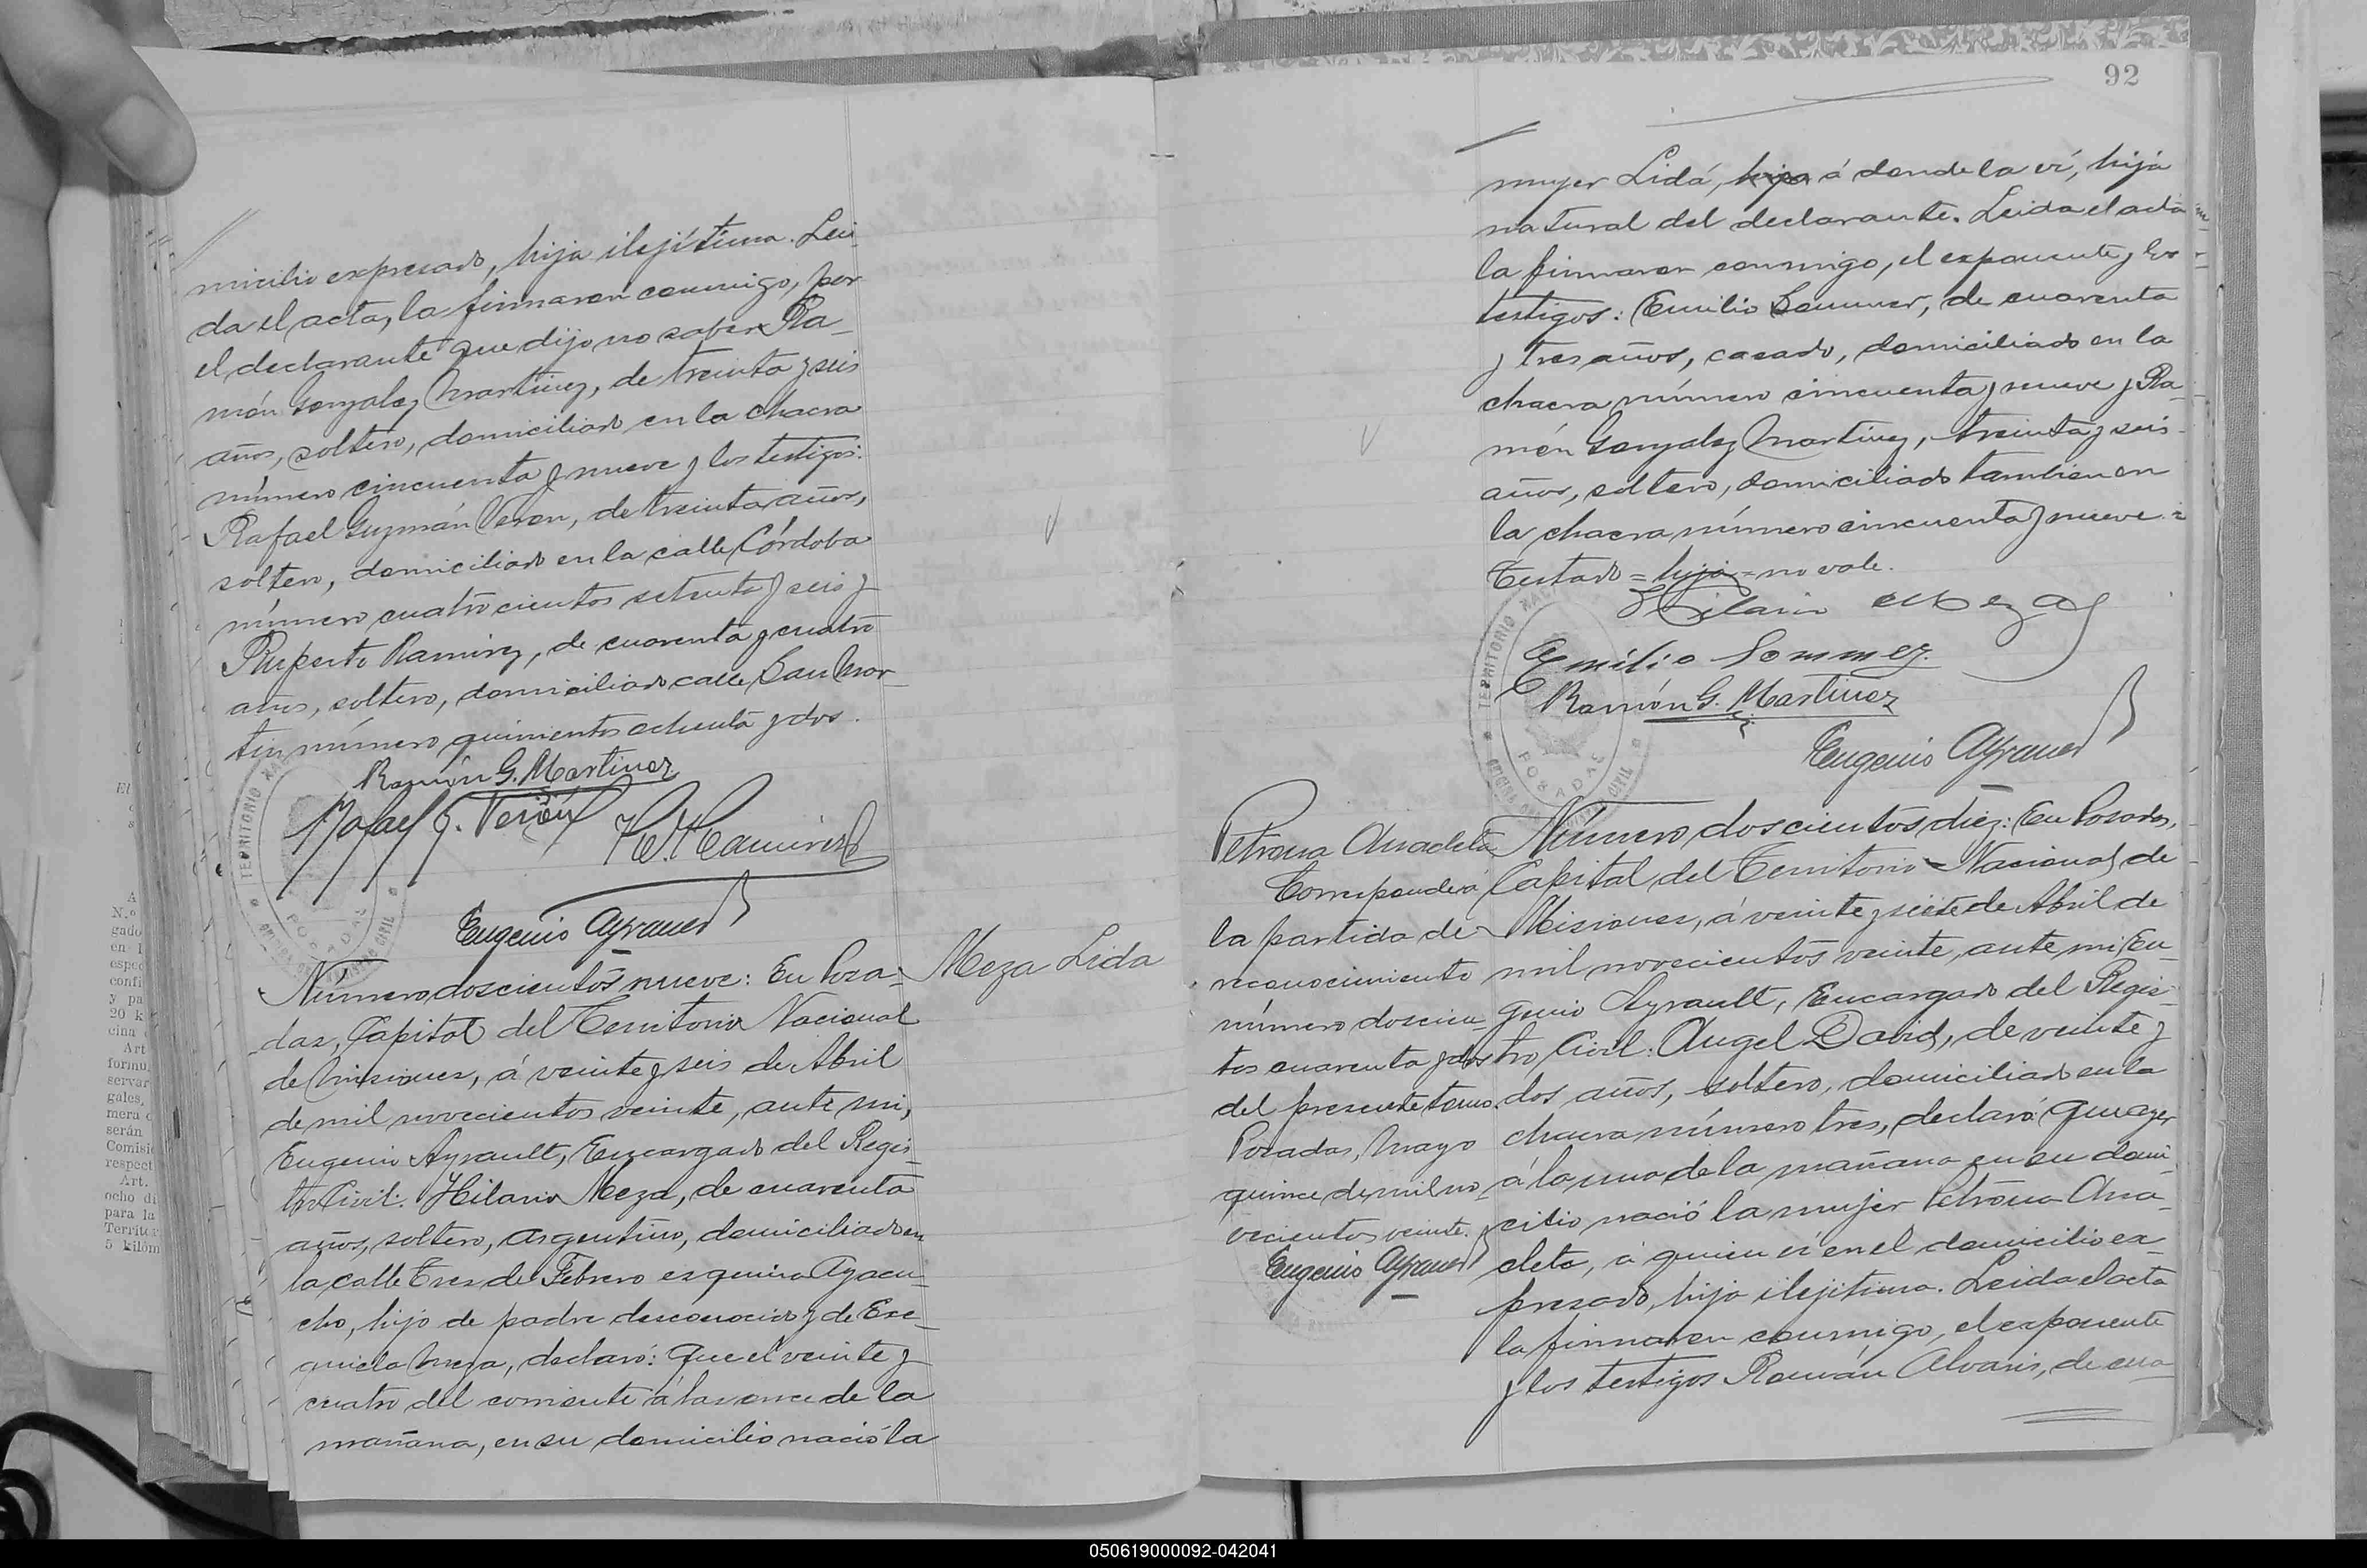 micilio expresado, hija ilejítima. Lei
da el acta, la firmaron conmigo, por
el declarante que dijo no saber Ra-
món Gonzalez Martinez, de treinta y seis
años, soltero, domiciliado en la chacra
número cincuenta y nueve y los testigos:
Rafael Guzmán Veron, de treinta años,
soltero, domiciliado en la calle Córdoba
número cuatrocientos setenta y seis y
Ruperto Ramirez, de cuarenta y cuatro
años, soltero, domiciliado calle San Mar-
tin número quinientos ochenta y dos.
Ramón G. Martinez
Rafael G. Verón
R. Ramirez
Eugenio Ayrault
Meza Lida
Número doscientos nueve: En Posa-
das, Capital del Territorio Nacional
de Misiones, á veinte y seis de Abril
de mil novecientos veinte, ante mi,
Eugenio Ayrault, Encargado del Regis-
tro Civil: Hilario Meza, de cuarenta
años, soltero, argentino, domiciliado en
la calle Tres de Febrero esquina Ayacu-
cho, hijo de padre desconocido y de Exe-
quiela Meza, declaró: Que el veinte y
cuatro del corriente á las once de la
mañana, en su domicilio nació la
92
mujer Lidá, hija á donde la ví, hija
natural del declarante. Leida el acta
la firmaron conmigo, el exponente y los
testigos: Emilio Sommer, de cuarenta
y tres años, casado, domiciliado en la
chacra número cincuenta y nueve y Ra-
món Gonzalez Martinez, treinta y seis
años, soltero, domiciliado tambien en
la chacra número cincuenta y nueve =
Testado = hija = no vale.
Hilario Meza
Emilio Sommer
Ramón G. Martinez
Eugenio Ayrault
TERRITORIO
POSADAS
Petrona Anacleta
Corresponde á
la partida de
reconocimiento
número doscien-
tos cuarenta y dos
del presente tomo.
Posadas, Mayo
quince de mil no-
vecientos veinte.
Eugenio Ayrault
Número doscientos diez: En Posadas,
Capital del Territorio Nacional de
Misiones, á veinte y siete de Abril de
mil novecientos veinte, ante mi Eu-
genio Ayrault, Encargado del Regis-
tro Civil: Angel David, de veinte y
dos años, soltero, domiciliado en la
chacra número tres, declaró: Que ayer
á la una de la mañana en su domi-
cilio nació la mujer Petrona Ana-
cleta, á quien ví en el domicilio ex-
presado, hija ilejitima. Leida el acta
la firmaron conmigo, el exponente
y los testigos Román Alvaris, de cua-
050619000092-042041